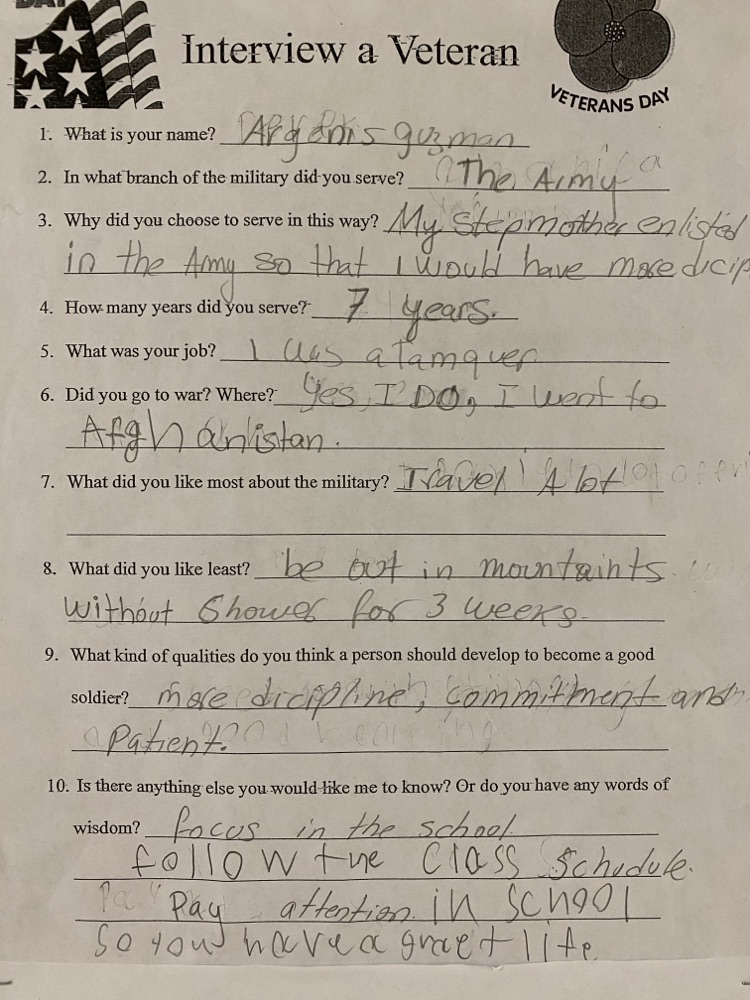 DAY
Interview a Veteran
VETERANS DAY
1. What is your name? Argenis guzman
2. In what branch of the military did you serve? The Army
3. Why did you choose to serve in this way? My Stepmother enlisted
in the Army so that I would have more dicip
4. How many years did you serve? 7 years.
5. What was your job? I was a Tamquer
6. Did you go to war? Where? Yes, I DO, I went to
Afghanistan.
7. What did you like most about the military? Travel A lot
8. What did you like least? be out in mountaints
without Shower for 3 weeks.
9. What kind of qualities do you think a person should develop to become a good
soldier? more dicipline, commitment and
Patient.
10. Is there anything else you would like me to know? Or do you have any words of
wisdom? focus in the school
follow the Class Schudule.
Pay attention in School
So you have a graet life.